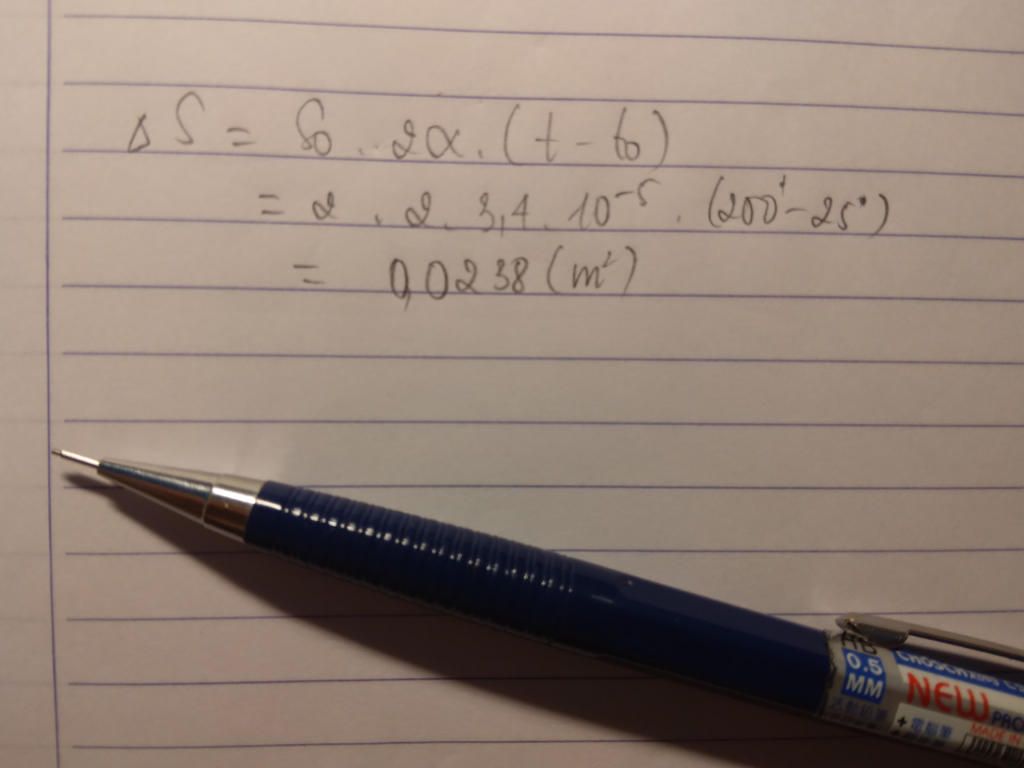 ΔS = S₀ . 2α . (t - t₀)
= 2 . 2 . 3,4 . 10⁻⁵ . (200° - 25°)
= 0,0238 (m²)
HB
0.5
MM
NEW
MADE IN